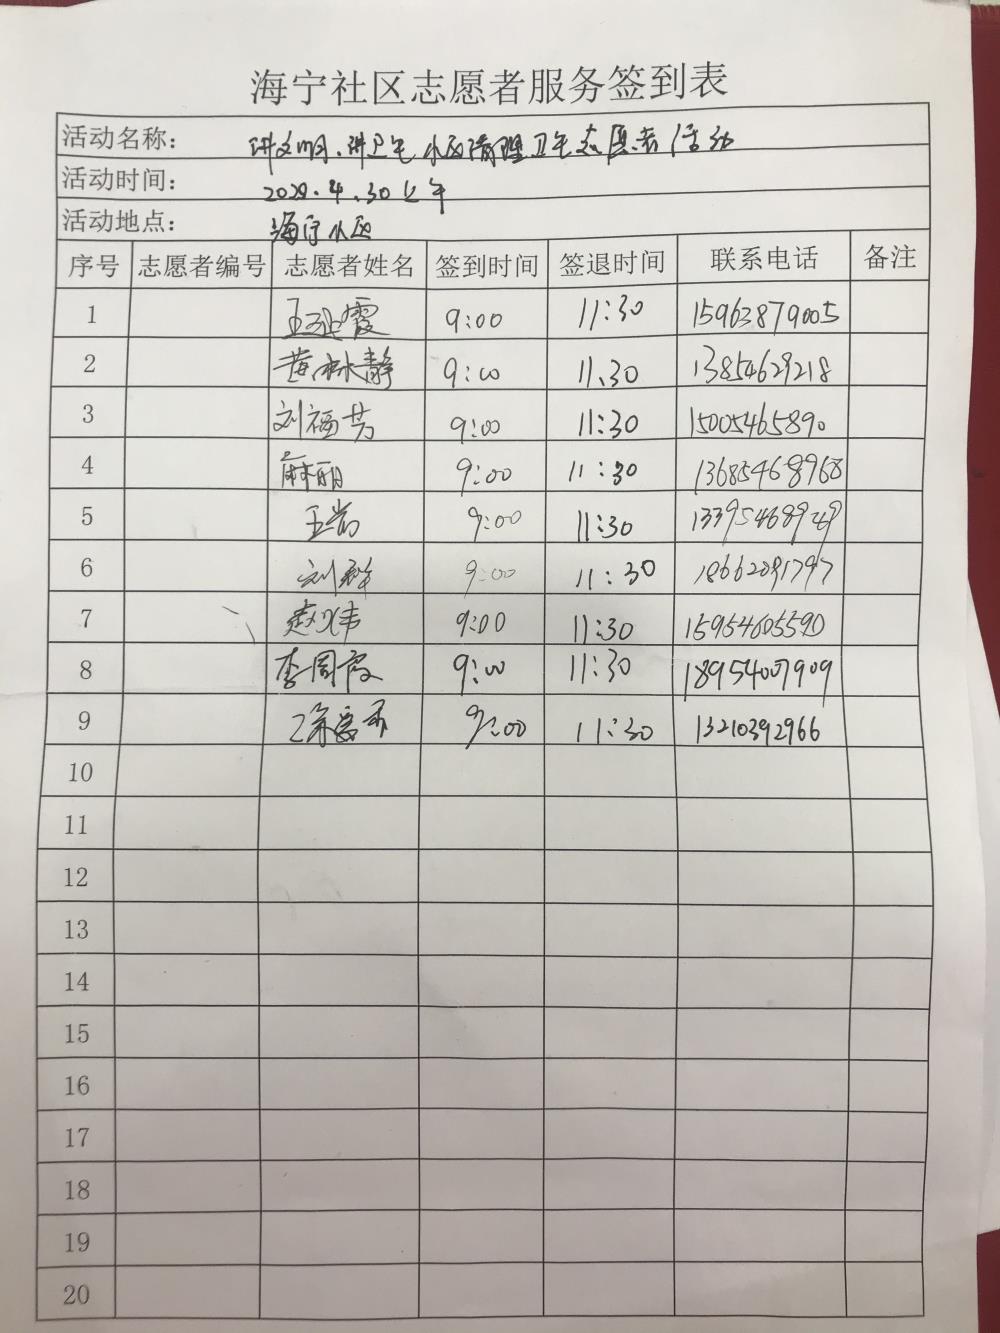 海宁社区志愿者服务签到表
活动名称： 讲文明、讲卫生小区清理卫生志愿者活动
活动时间： 4.30上午
活动地点： 海宁小区
序号 志愿者编号 志愿者姓名 签到时间 签退时间 联系电话 备注
1 霞 9:00 11:30 15963879005
2 黄林静 9:00 11.30 13854629218
3 刘福芳 9:00 11:30 15005465890
4 麻丽 9:00 11:30 13685468968
5 9:00 11:30
6 刘群 9:00 11:30
7 赵 9:00 11:30 15954605590
8 李周霞 9:00 11:30 18954007909
9 9:00 11:30 13210392966
10
11
12
13
14
15
16
17
18
19
20